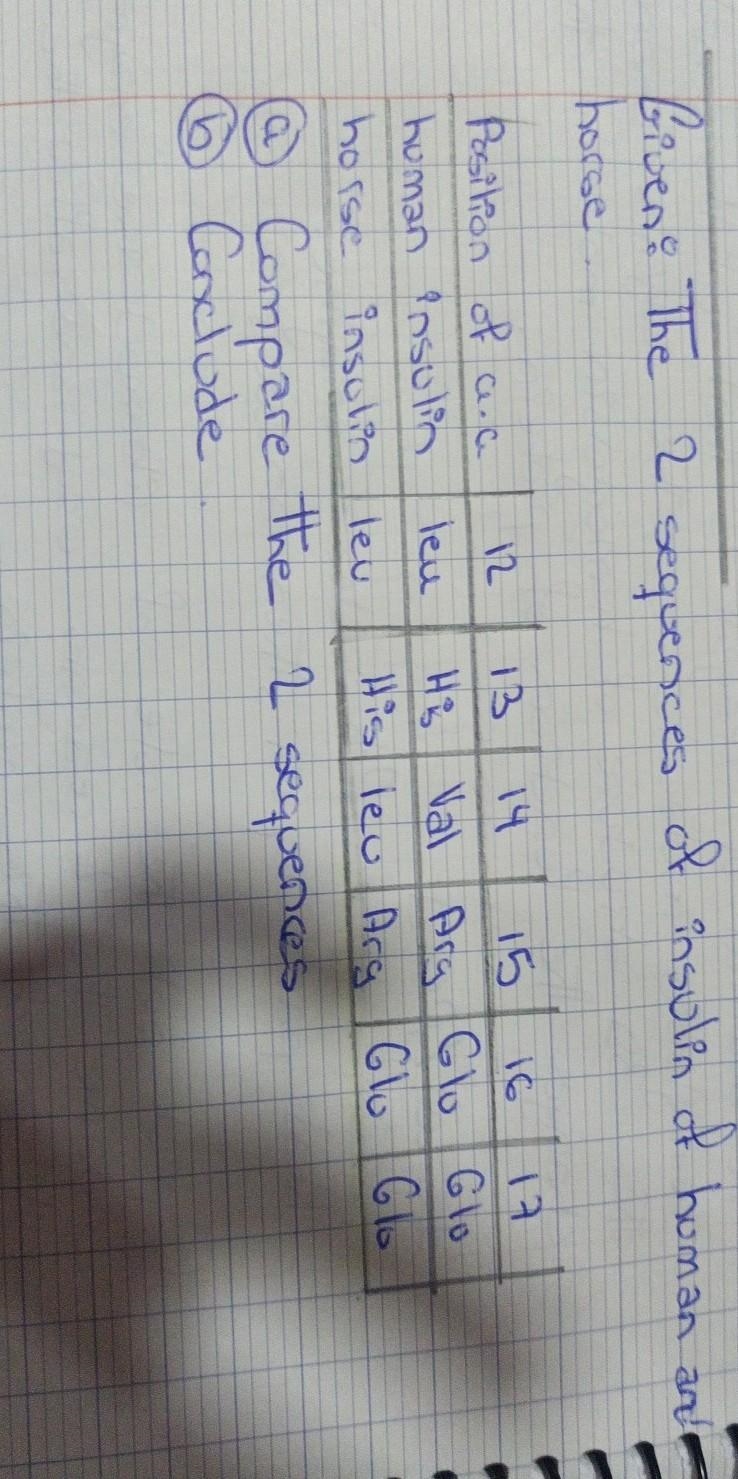 Given: The 2 sequences of insulin of human and
horse.
Position of a.a 12 13 14 15 16 17
human insulin leu His Val Arg Glu Glu
horse insulin leu His leu Arg Glu Glu
a Compare the 2 sequences
b Conclude.